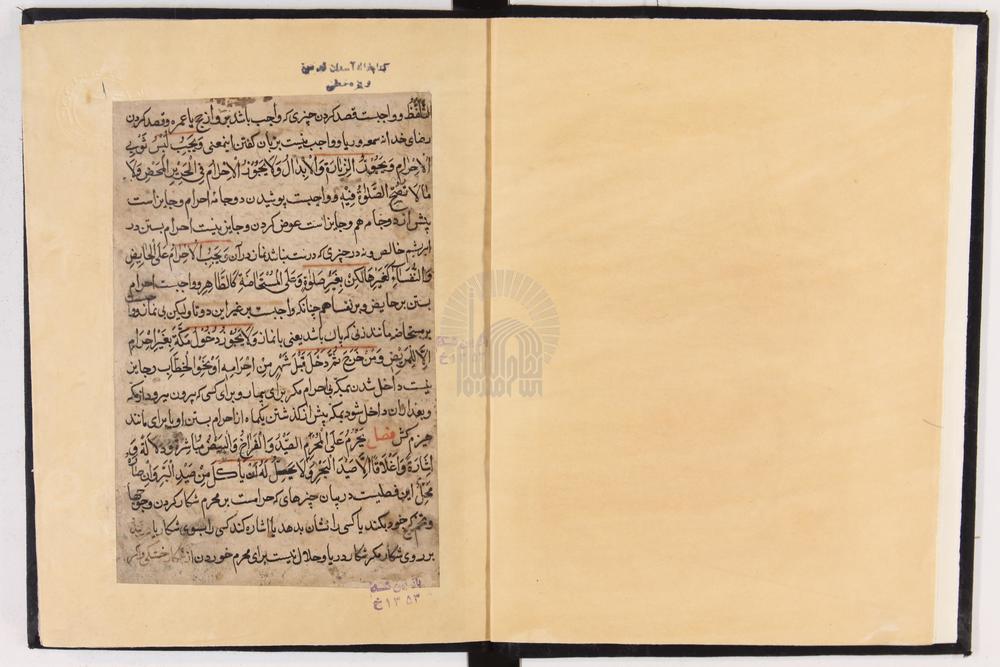 کتابخانه آستان قدس
۱
التلفظ و واجبست قصد کردن چیزی که واجب باشد برو از حج یا عمره و قصد کردن
رضای خدا نه سمعه و ریا و واجب نیست بزبان کفتن اینمعنی وَیَجِبُ لُبْسُ ثَوْبَیِ
الْاِحْرَامِ وَیَجُوزُ الزِّیَادَةُ وَالْاِبْدَالُ وَلَا یَجُوزُ الْاِحْرَامُ فِی الْحَرِیرِ الْمَحْضِ وَلَا
مَا لَا تَصِحُّ الصَّلوٰةُ فِیهِ و واجبست پوشیدن دو جامهٔ احرام و جایز است
پیش از دو جامه هم و جایز است عوض کردن و جایز نیست احرام بستن در
ابریشم خالص و نه در چیزی که درست نباشد نماز در آن وَیَجِبُ الْاِحْرَامُ عَلَی الْحَایِضِ
وَالنُّفَسَاءِ کَغَیْرِهَا لٰکِنْ بِغَیْرِ صَلوٰةٍ وَعَلَی الْمُسْتَحَاضَةِ کَالطَّاهِرِ و واجبست احرام
بستن بر حایض و بر نفسا همچنانکه واجبست بر غیر این دو تا ولیکن بی نماز و
بر مستحاضه مانند زنی که پاک باشد یعنی با نماز وَلَا یَجُوزُ دُخُولُ مَکَّةَ بِغَیْرِ اِحْرَامٍ
اِلَّا لِلْمَرِیضِ وَمَنْ خَرَجَ ثُمَّ دَخَلَ قَبْلَ شَهْرٍ مِنْ اِحْرَامِهِ اَوْ نَحْوِ الْحَطَّابِ و جایز
نیست داخل شدن بمکه بی احرام مکر برای بیمار و برای کسی که بیرون برود از مکه
و بعد از آن داخل شود بمکه پیش از کذشتن یکماه از احرام بستن او یا برای مانند
هیزم کش فصل یَحْرُمُ عَلَی الْمُحْرِمِ الصَّیْدُ وَالْفِرَاخُ وَالْبَیْضُ مُبَاشَرَةً وَدَلَالَةً وَ
اِشَارَةً وَاِغْلَاقًا اِلَّا صَیْدَ الْبَحْرِ وَلَا یَحِلُّ لَهُ اَنْ یَأْکُلَ مِنْ صَیْدِ الْبَرِّ وَاِنْ صَادَهُ
مُحِلٌّ این فصلیست در بیان چیزهای که حرامست بر محرم شکار کردن و جوجها
و تخم که خود بکند یا کسی را نشان بدهد یا اشاره کند کسی را بسوی شکار یا
بر روی شکار مکر شکار دریا و حلال نیست برای محرم خوردن از شکار خشکی و اکر
بازبین شد
۱۳۵۳ خ